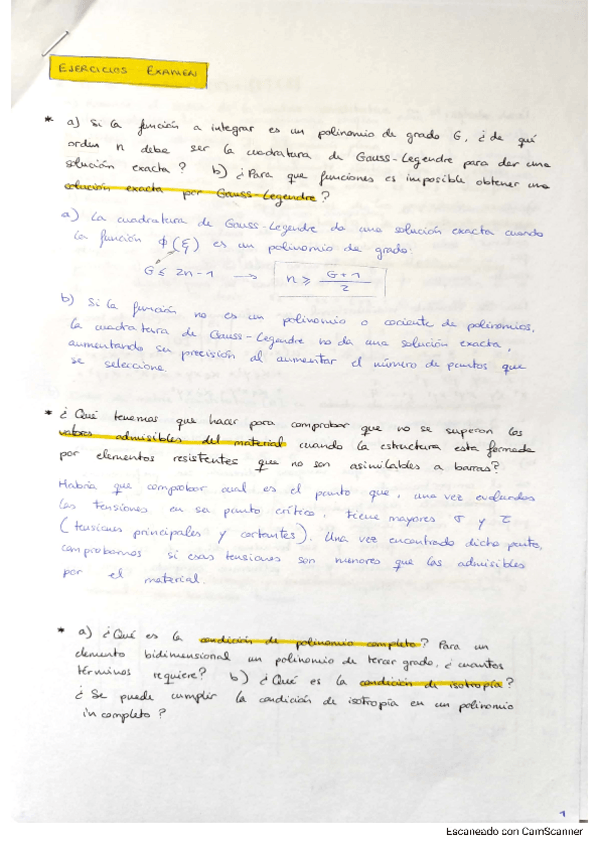 EJERCICIOS EXAMEN
* a) Si la función a integrar es un polinomio de grado G, ¿de qué
orden n debe ser la cuadratura de Gauss-Legendre para dar una
solución exacta? b) ¿Para que funciones es imposible obtener una
solución exacta por Gauss-Legendre?
a) La cuadratura de Gauss-Legendre da una solución exacta cuando
la función ϕ(ξ) es un polinomio de grado:
G ≤ 2n-1 → n ≥ G+1 / 2
b) Si la función no es un polinomio o cociente de polinomios,
la cuadratura de Gauss-Legendre no da una solución exacta,
aumentando su precisión al aumentar el número de puntos que
se seleccione.
* ¿Qué tenemos que hacer para comprobar que no se superan los
valores admisibles del material cuando la estructura esta formada
por elementos resistentes que no son asimilables a barras?
Habría que comprobar cual es el punto que, una vez evaluadas
las tensiones en su punto crítico, tiene mayores σ y τ
(tensiones principales y cortantes). Una vez encontrado dicho punto,
comprobamos si esas tensiones son menores que las admisibles
por el material.
* a) ¿Qué es la condición de polinomio completo? Para un
elemento bidimensional un polinomio de tercer grado, ¿cuantos
términos requiere? b) ¿Qué es la condición de isotropía?
¿Se puede cumplir la condición de isotropía en un polinomio
incompleto?
1
Escaneado con CamScanner